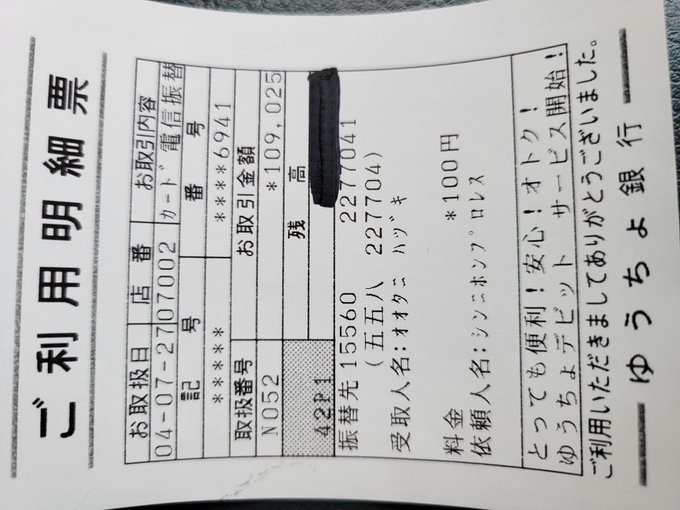 ご利用明細票
お取扱日 店番 お取引内容
04-07-27 07002 カード 電信振替
記号 番号
***** ****6941
取扱番号 お取引金額
N052 *109,025
残高
42P1
振替先 15560 2277041
(五五八 227704)
受取人名:オオタニ ハヅキ
料金 *100円
依頼人名:シンニホンプロレス
とっても便利!安心!オトク!
ゆうちょデビット サービス開始!
ご利用いただきましてありがとうございました。
ゆうちょ銀行